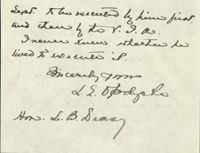 Sept. to be executed by him first
and then by the V. I. R.
I never knew whether he
lived to execute it.
Sincerely yours
L. B. Deasy
Hon. L. B. Deasy